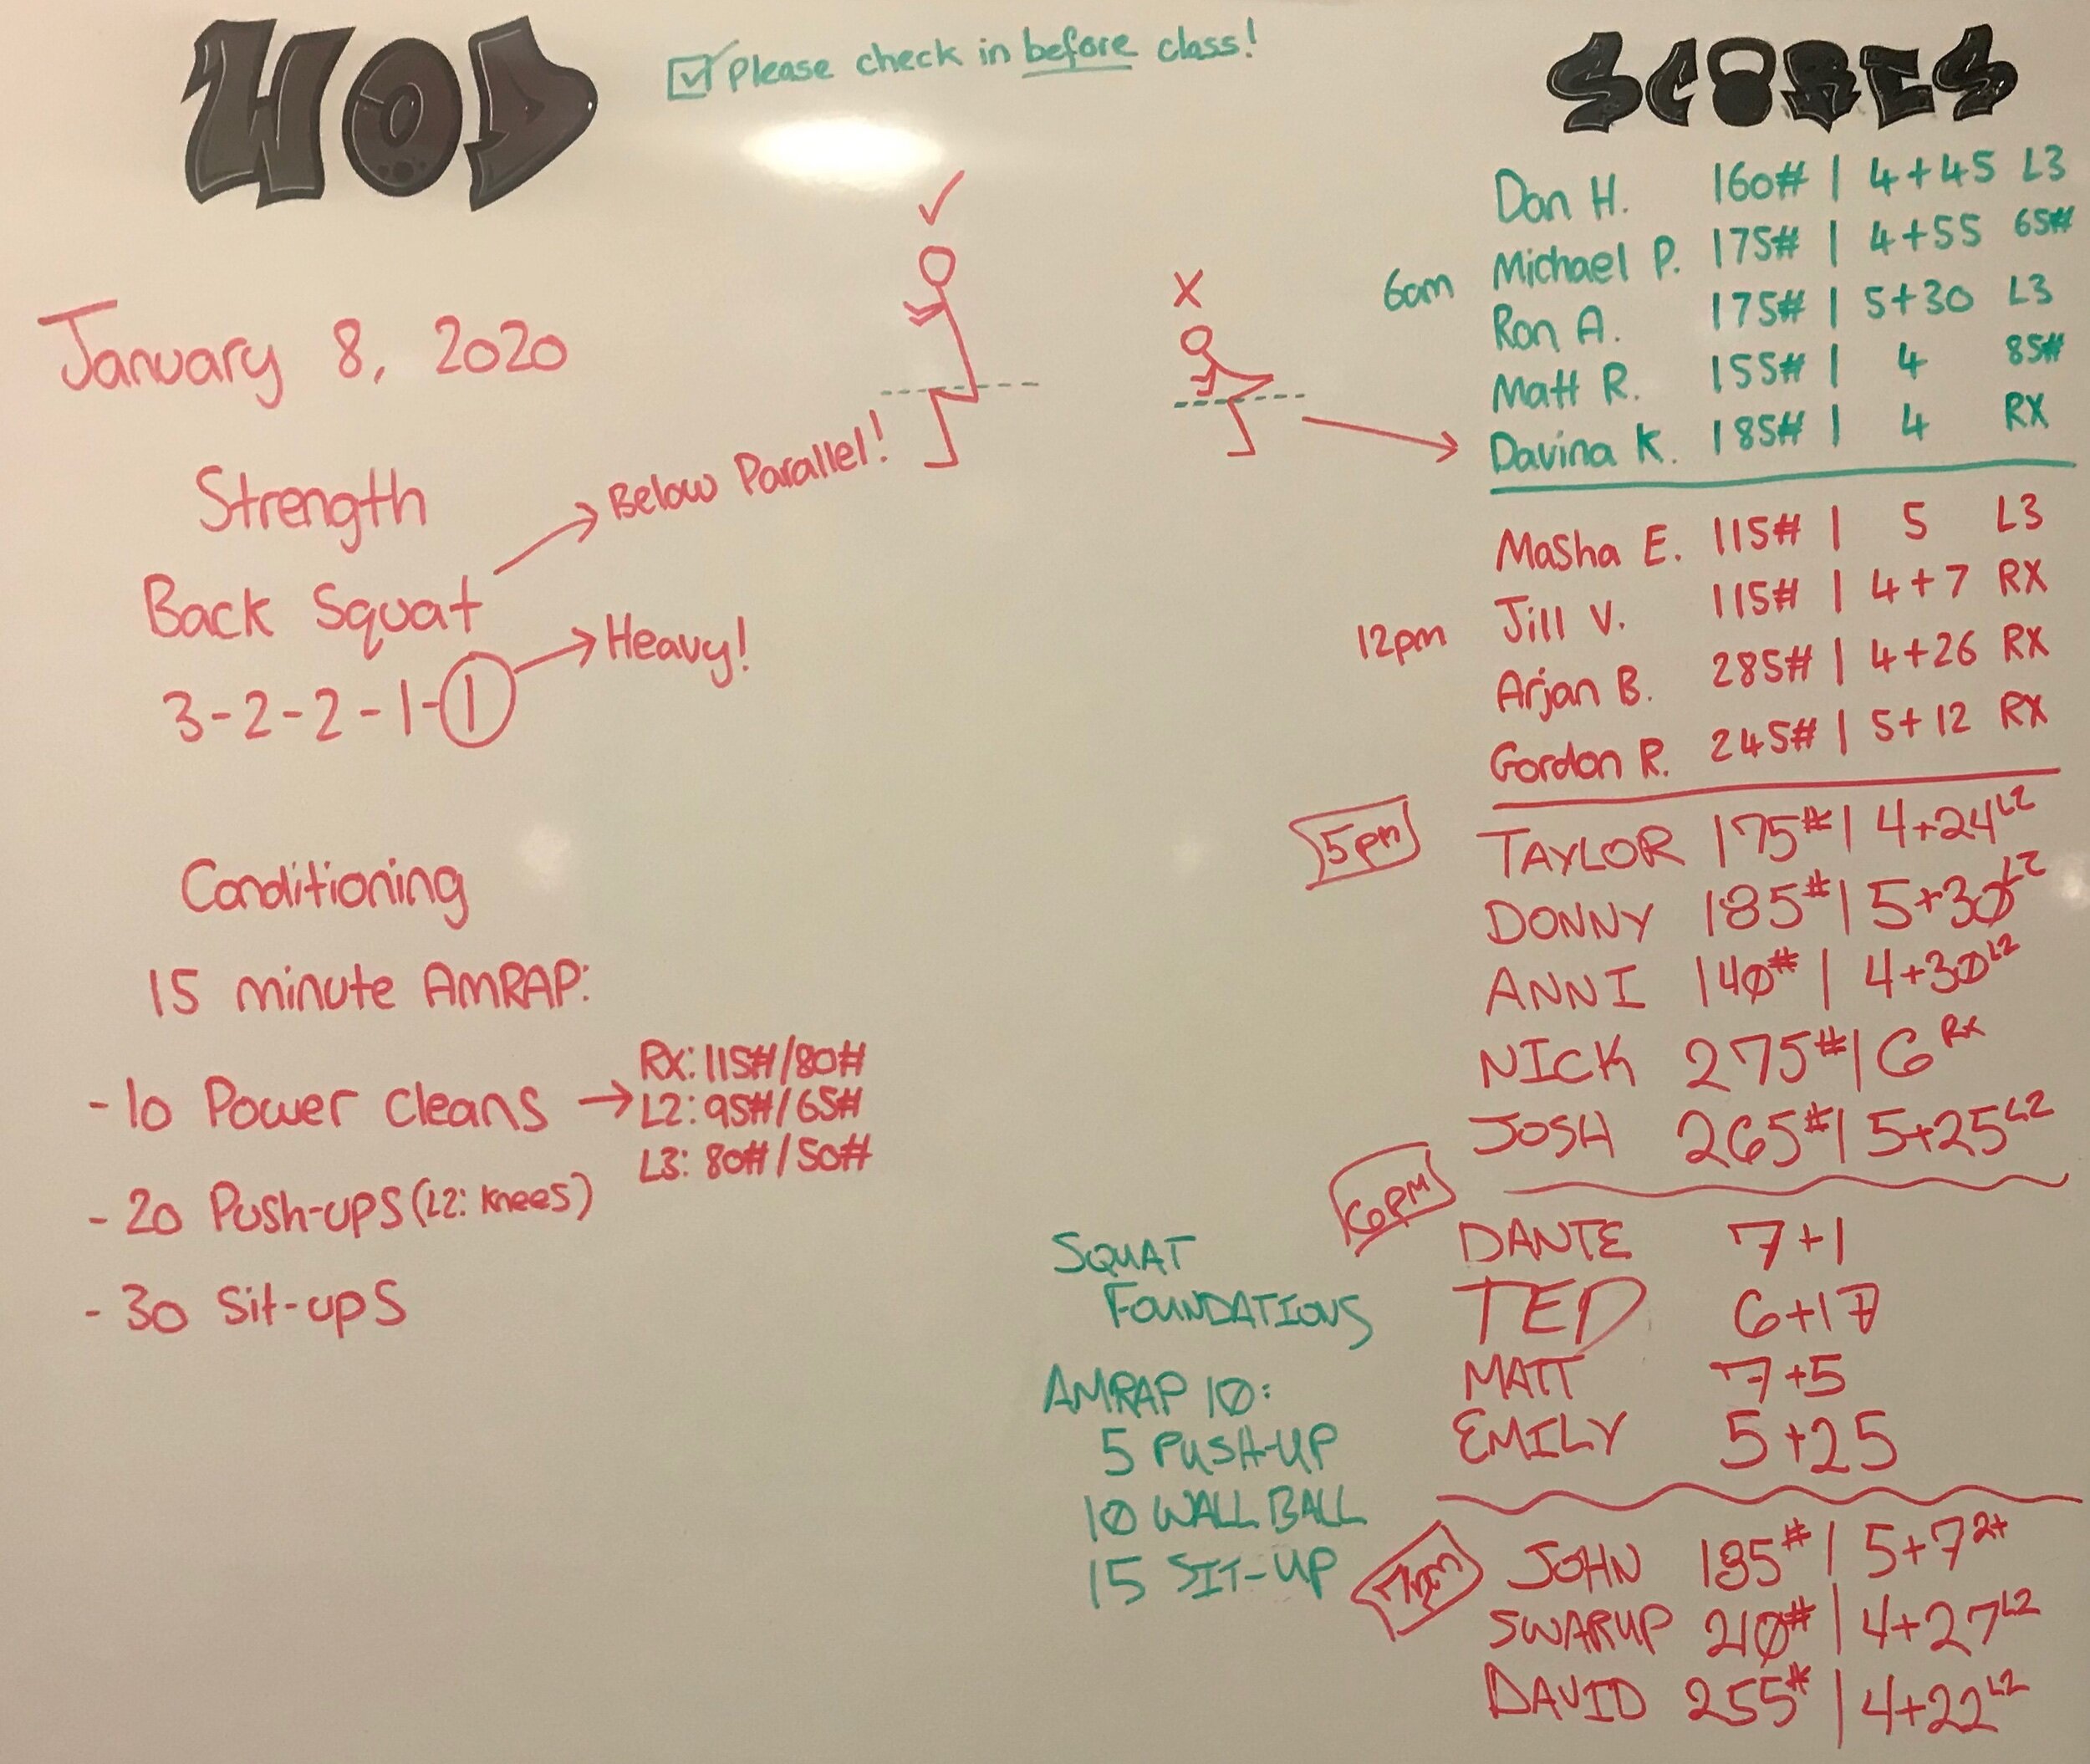 WOD
☑ Please check in before class!
January 8, 2020
Strength
Back Squat → Below Parallel!
3-2-2-1-1 → Heavy!
Conditioning
15 minute AMRAP:
-10 Power Cleans → RX: 115#/80#
L2: 95#/65#
L3: 80#/50#
-20 Push-ups (L2: Knees)
-30 Sit-ups
✓
X
SQUAT
FOUNDATIONS
AMRAP 10:
5 PUSH-UP
10 WALL BALL
15 SIT-UP
SCORES
6am
Dan H. 160# | 4+45 L3
Michael P. 175# | 4+55 65#
Ron A. 175# | 5+30 L3
Matt R. 155# | 4 85#
Davina K. 185# | 4 RX
12pm
Masha E. 115# | 5 L3
Jill V. 115# | 4+7 RX
Arjan B. 285# | 4+26 RX
Gordon R. 245# | 5+12 RX
5pm
TAYLOR 175# | 4+24 L2
DONNY 185# | 5+30 L2
ANNI 140# | 4+30 L2
NICK 275# | 6 RX
JOSH 265# | 5+25 L2
6PM
DANTE 7+1
TED 6+17
MATT 7+5
EMILY 5+25
7pm
JOHN 185# | 5+7
SWARUP 210# | 4+27 L2
DAVID 255# | 4+22 L2